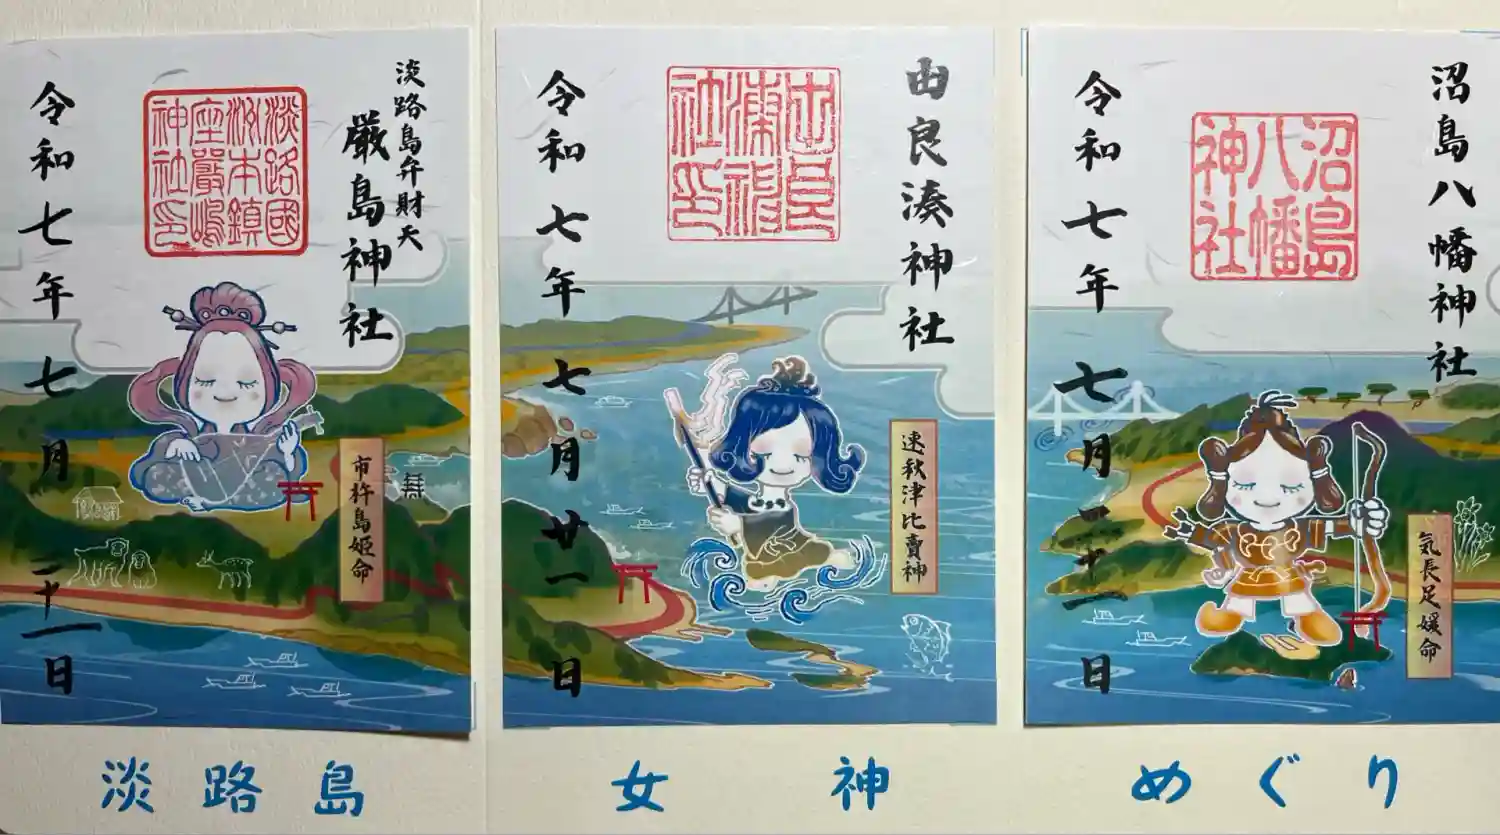 淡路島弁財天
厳島神社
淡路國
洲本鎮
座嚴嶋
神社印
市杵島姫命
令和七年七月二十一日
由良湊神社
由良
湊神
社印
速秋津比賣神
令和七年七月廿一日
沼島八幡神社
沼島
八幡
神社
気長足媛命
令和七年七月二十一日
淡路島 女神 めぐり